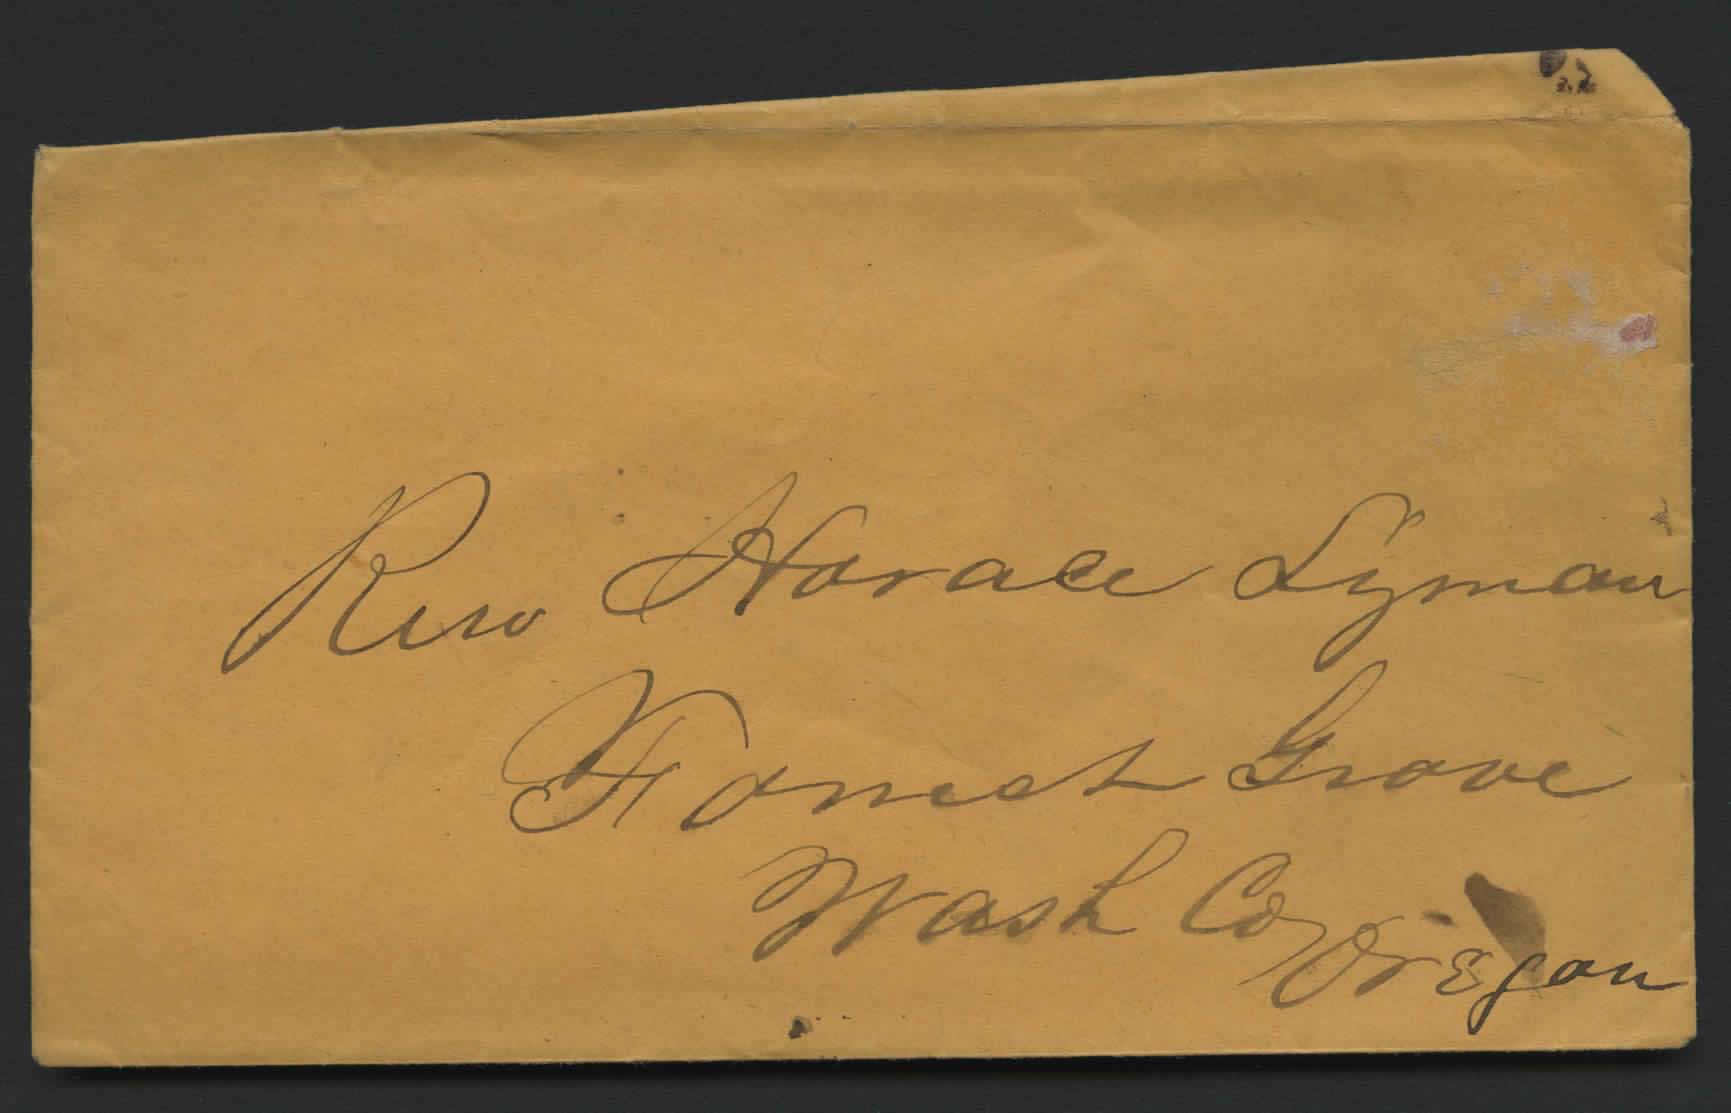 Rev Horace Lyman
Forrest Grove
Wash Co Oregon